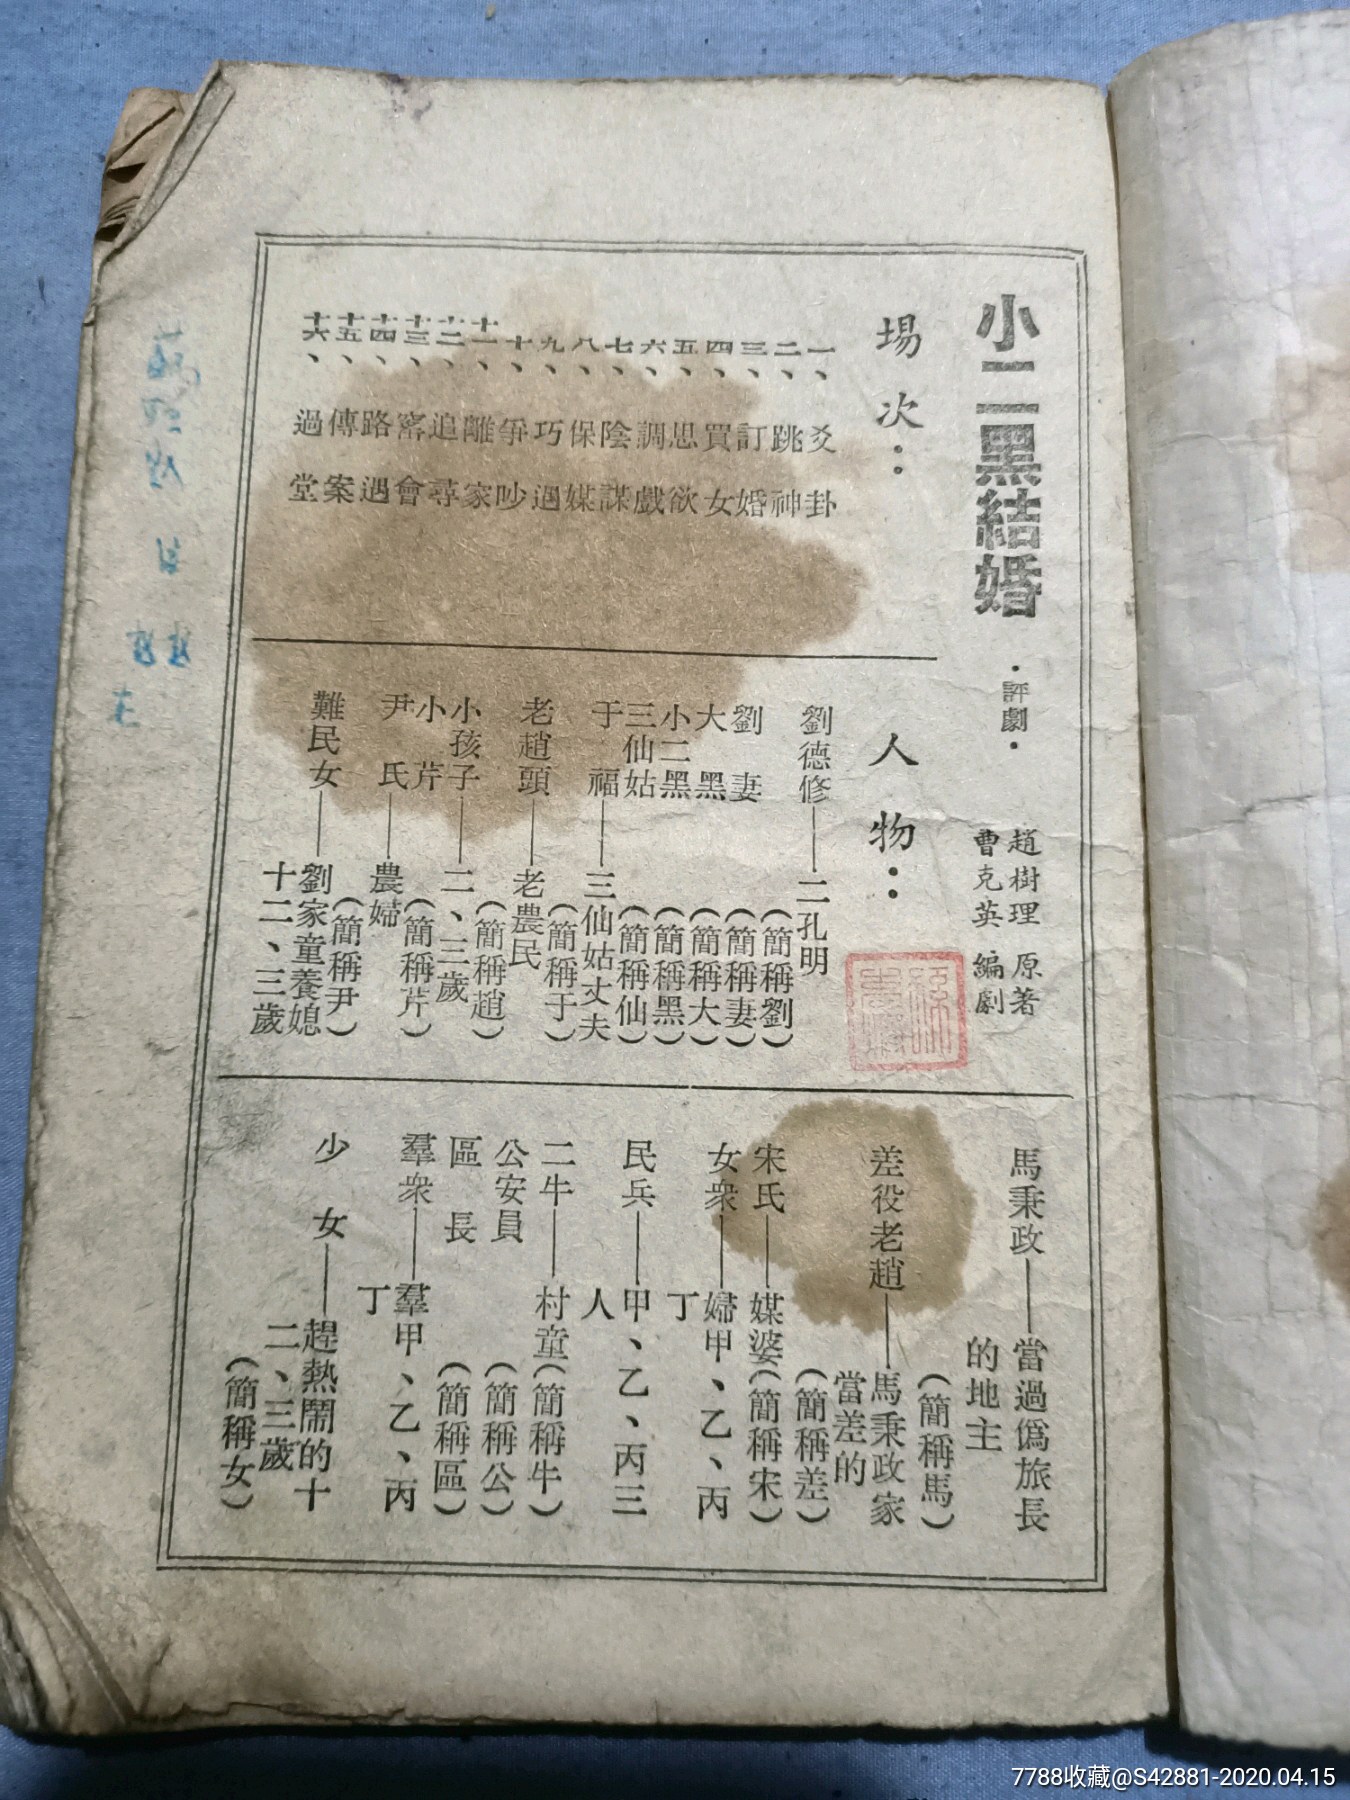 小二黑結婚
·評劇·
趙樹理 原著
曹克英 編劇
場次：
一、爻卦
二、跳神
三、訂婚
四、買女
五、思欲
六、調戲
七、陰謀
八、保媒
九、巧遇
十、爭吵
十一、離家
十二、追尋
十三、密會
十四、路遇
十五、傳案
十六、過堂
人物：
劉德修——二孔明
（簡稱劉）
劉妻（簡稱妻）
大黑（簡稱大）
小二黑（簡稱黑）
三仙姑（簡稱仙）
于福——三仙姑丈夫
（簡稱于）
老趙頭——老農民
（簡稱趙）
小孩子——二、三歲
小芹（簡稱芹）
尹氏——農婦
（簡稱尹）
難民女——劉家童養媳
十二、三歲
馬秉政——當過僞旅長
的地主
（簡稱馬）
差役老趙——馬秉政家
當差的
（簡稱差）
宋氏——媒婆（簡稱宋）
女衆——婦甲、乙、丙
丁
民兵——甲、乙、丙三
人
二牛——村童（簡稱牛）
公安員（簡稱公）
區長（簡稱區）
羣衆——羣甲、乙、丙
丁
少女——趕熱鬧的十
二、三歲
（簡稱女）
7788收藏@S42881-2020.04.15